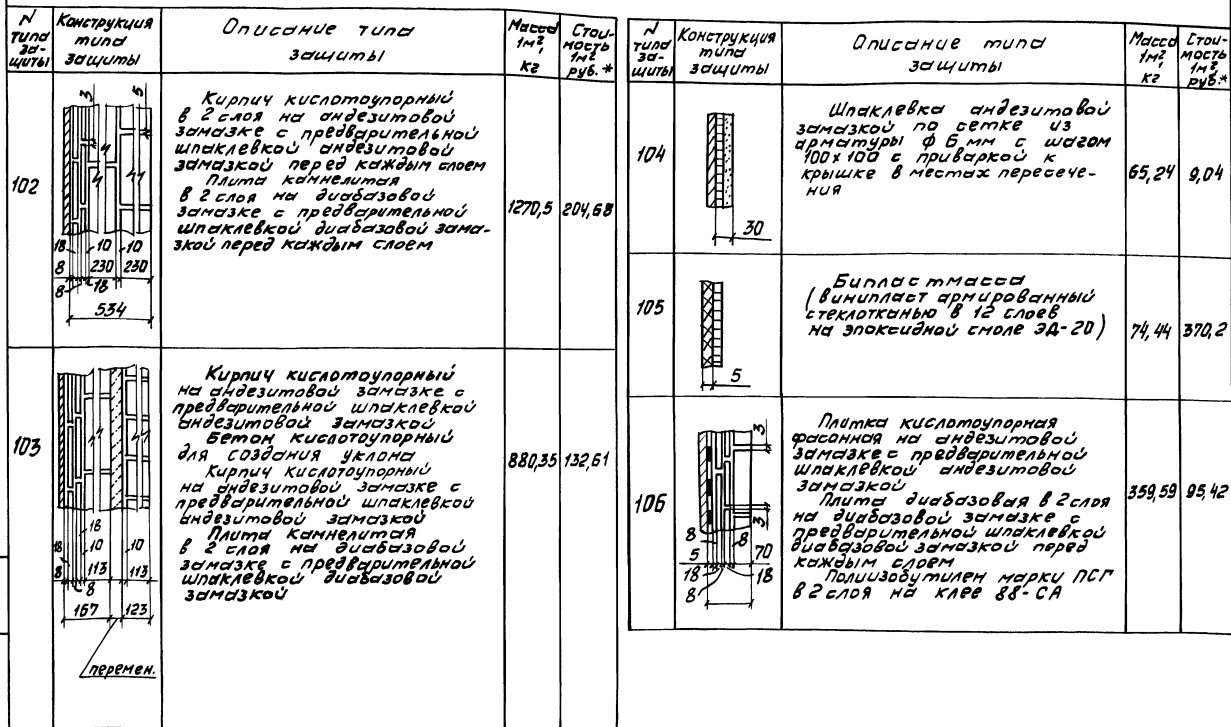 N типа за-щиты
Конструкция типа защиты
Описание типа защиты
Масса 1м², кг
Стои-мость 1м² руб.*
102
3
5
18
10
10
8
230
230
8
18
534
Кирпич кислотоупорный
в 2 слоя на андезитовой
замазке с предварительной
шпаклевкой андезитовой
замазкой перед каждым слоем
Плита камнелитая
в 2 слоя на диабазовой
замазке с предварительной
шпаклевкой диабазовой зама-
зкой перед каждым слоем
1270,5
204,68
103
18
18
10
10
8
113
113
8
167
123
перемен.
Кирпич кислотоупорный
на андезитовой замазке с
предварительной шпаклевкой
андезитовой замазкой
Бетон кислотоупорный
для создания уклона
Кирпич кислотоупорный
на андезитовой замазке с
предварительной шпаклевкой
андезитовой замазкой
Плита камнелитая
в 2 слоя на диабазовой
замазке с предварительной
шпаклевкой диабазовой
замазкой
880,35
132,61
N типа за-щиты
Конструкция типа защиты
Описание типа защиты
Масса 1м², кг
Стои-мость 1м² руб.*
104
30
Шпаклевка андезитовой
замазкой по сетке из
арматуры ф 6 мм с шагом
100х100 с приваркой к
крышке в местах пересече-
ния
65,24
9,04
105
5
Бипластмасса
(винипласт армированный
стеклотканью в 12 слоев
на эпоксидной смоле ЭД-20)
74,44
370,2
106
3
3
8
8
5
70
18
18
8
Плитка кислотоупорная
фасонная на андезитовой
замазке с предварительной
шпаклевкой андезитовой
замазкой
Плита диабазовая в 2 слоя
на диабазовой замазке с
предварительной шпаклевкой
диабазовой замазкой перед
каждым слоем
Полиизобутилен марки ПСГ
в 2 слоя на клее 88-СА
359,59
95,42